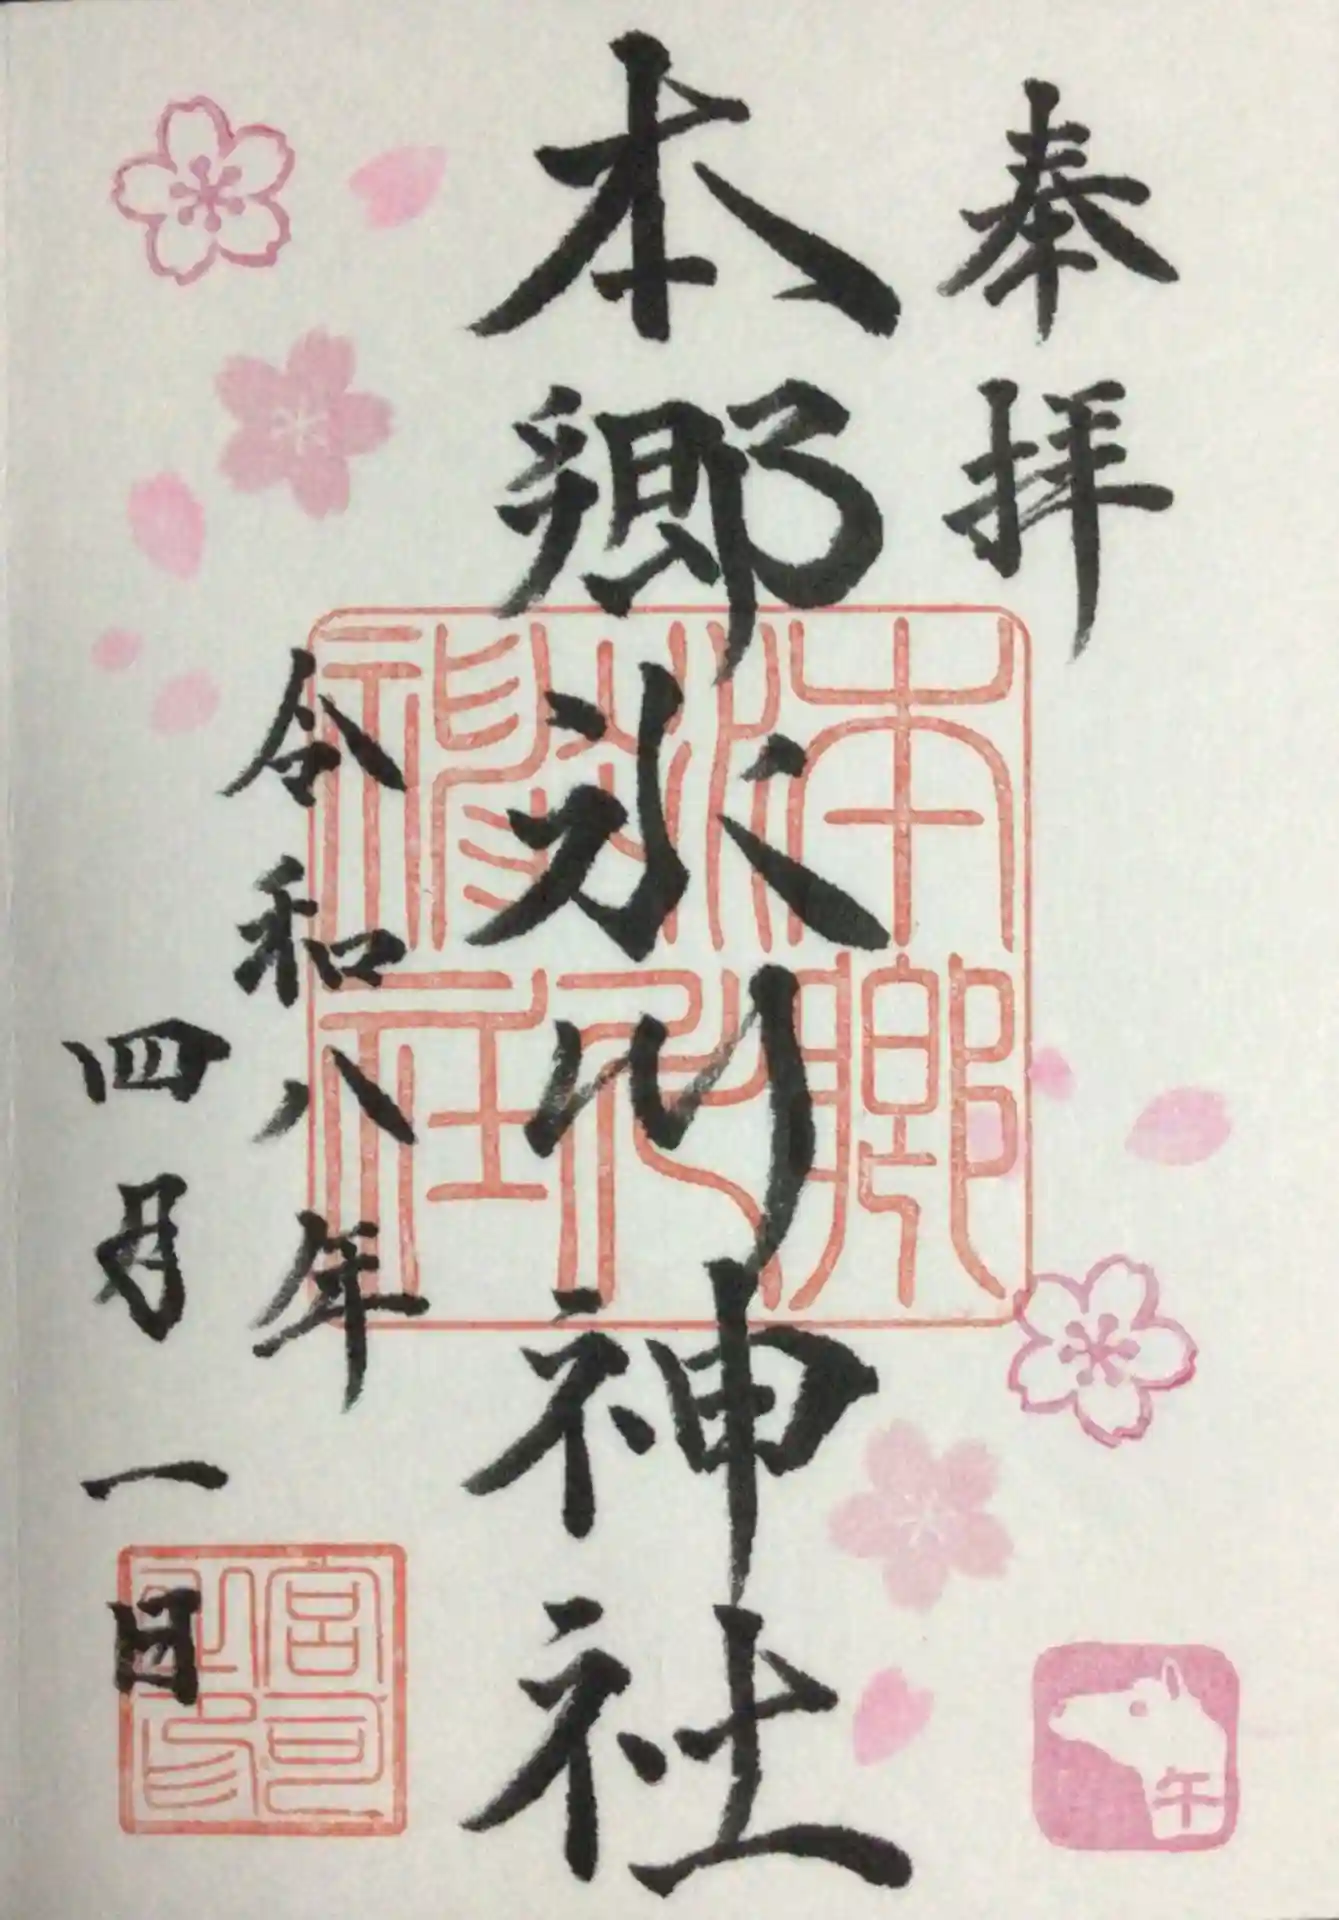 奉拝
本郷氷川神社
令和八年
四月一日
本郷
氷川
神社
宮司
之印
午